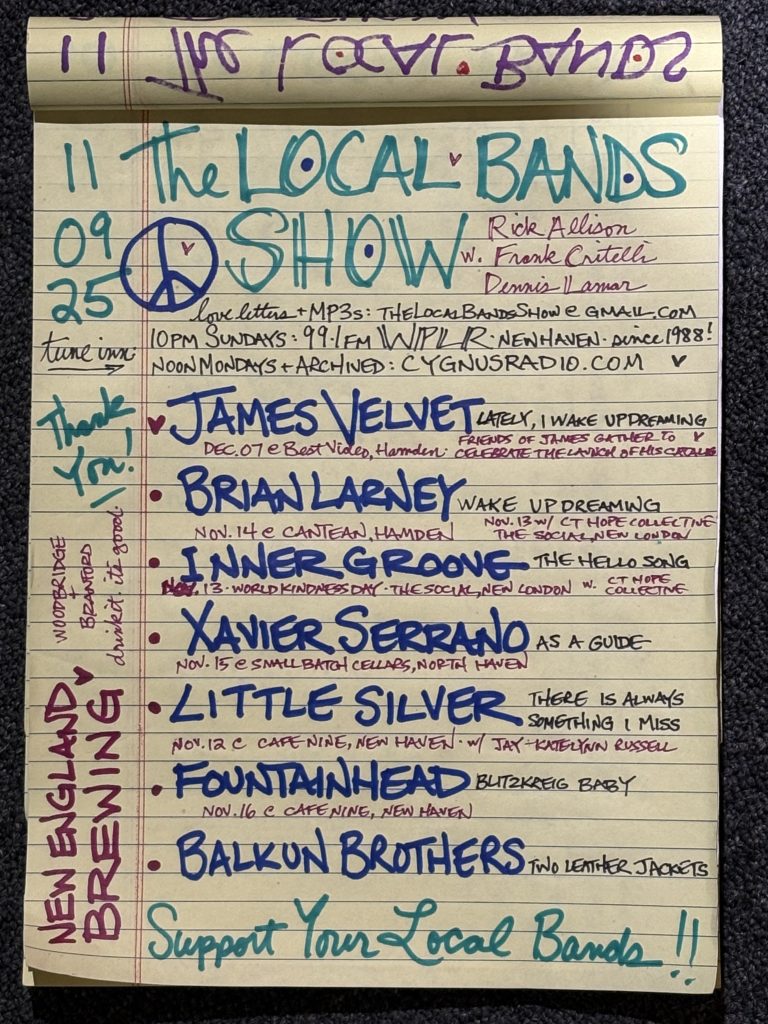 11 The LOCAL BANDS
11 The LOCAL BANDS
09 SHOW w. Rick Allison
Frank Critelli
25 Dennis Lamar
love letters + MP3s: THELOCALBANDSSHOW@GMAIL.COM
tune inn: 10PM SUNDAYS: 99.1FM WPLR · NEW HAVEN · since 1988!
NOON MONDAYS + ARCHIVED: CYGNUSRADIO.COM
Thank You!
JAMES VELVET LATELY, I WAKE UP DREAMING
DEC. 07 @ Best Video, Hamden: FRIENDS OF JAMES GATHER TO
CELEBRATE THE LAUNCH OF HIS CATALOG
• BRIAN LARNEY WAKE UP DREAMING
NOV. 14 @ CANTEAN, HAMDEN NOV. 13 w/ CT HOPE COLLECTIVE
THE SOCIAL, NEW LONDON
• INNER GROOVE THE HELLO SONG
NOV. 13 · WORLD KINDNESS DAY · THE SOCIAL, NEW LONDON w. CT HOPE
COLLECTIVE
• XAVIER SERRANO AS A GUIDE
NOV. 15 @ SMALL BATCH CELLARS, NORTH HAVEN
• LITTLE SILVER THERE IS ALWAYS
SOMETHING I MISS
NOV. 12 @ CAFE NINE, NEW HAVEN · w/ JAY + KATELYNN RUSSELL
• FOUNTAINHEAD BLITZKREIG BABY
NOV. 16 @ CAFE NINE, NEW HAVEN
• BALKUN BROTHERS TWO LEATHER JACKETS
Support Your Local Bands!!
NEW ENGLAND
BREWING
WOODBRIDGE
+
BRANFORD
drink it. it's good.